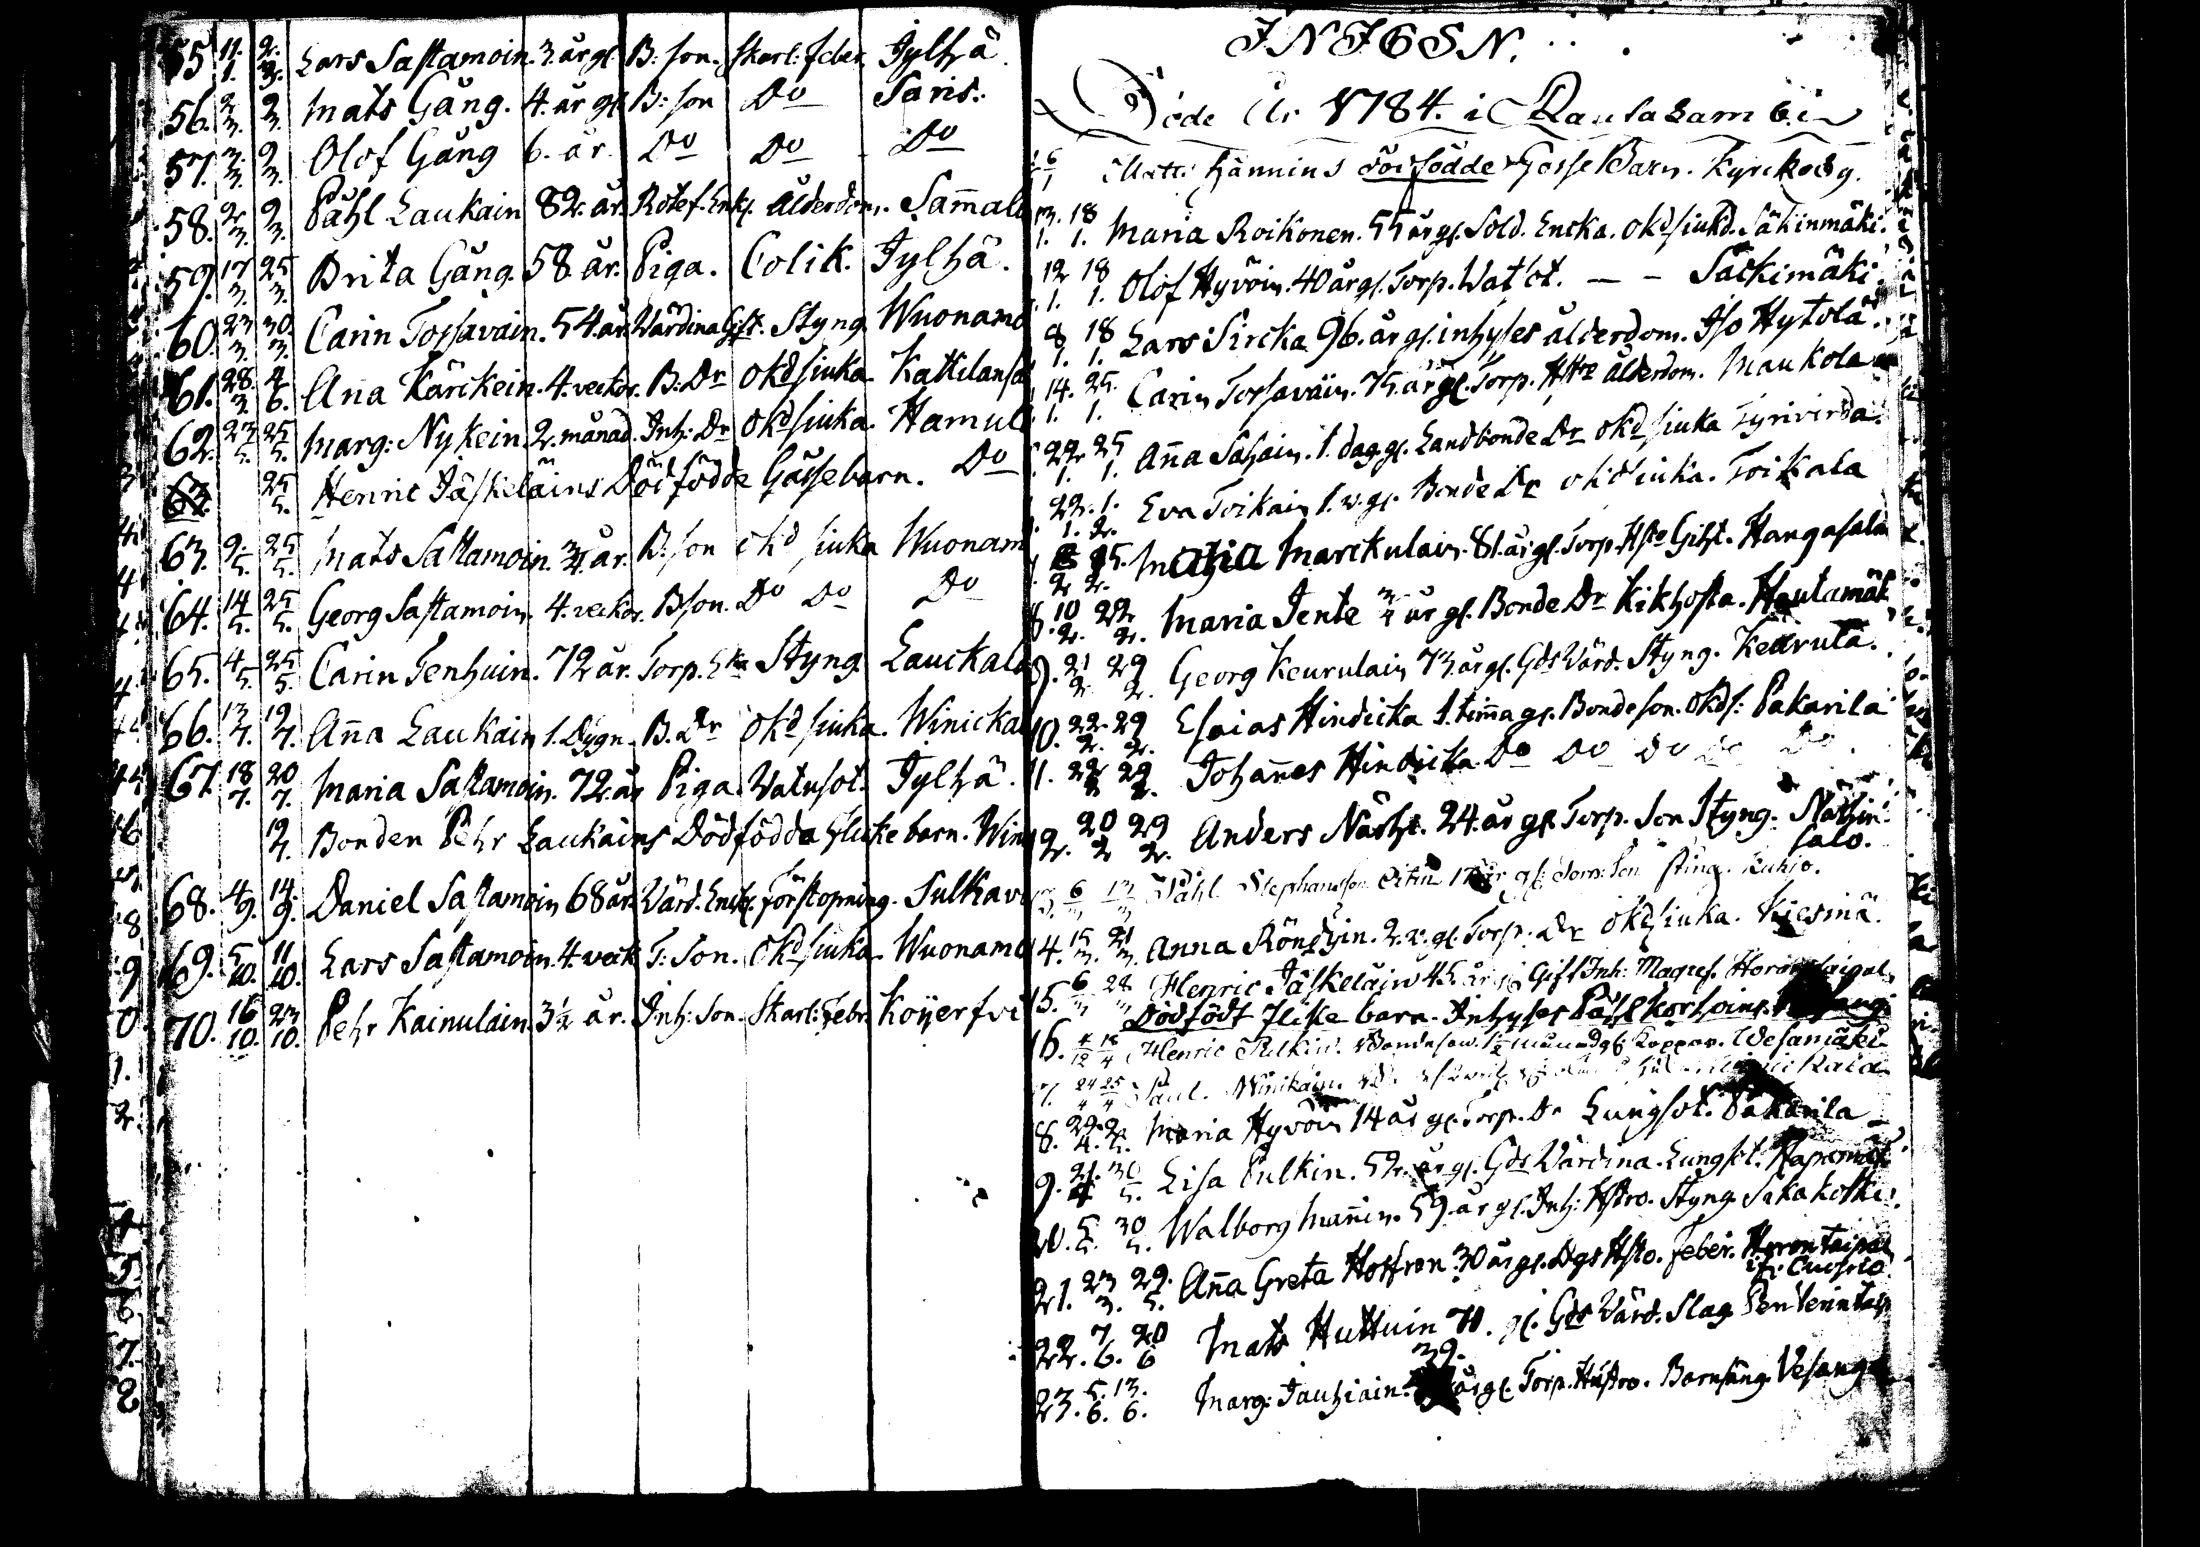 55 11/1. 2./3. Lars Sastamoin. 3. år gl. B: son. skarl: feber Jylhä.
56. 2/3. 2/3. Mats Gång. 4. år gl. B: son Do Saris.
57. 3./3. 9/3. Olof Gång 6. år. Do Do Do
58. 2/3. 9/3. Påhl Laukain 82. år. Rotef. Enkl. ålderdom. Sam̄al
59. 17/3. 25/3. Brita Gång. 58 år. Piga. Colik. Jylhä.
60. 23/3. 30/3. Carin Tossavain. 54 år. Wärdina Gift. Styng Wuonam
61. 28./3. 4/6. Ana Kärckein. 4. veckor. B: Dr okd siuka Katkilans
62. 27/5. 25/5. Marg: Nykein 2. månad. Inh: Dr okd siuka. Hamul
25/5. Henric Jäskeläins Död födde Gåssebarn. Do
63. 9/5. 25/5. Mats Sastamoin. 3/4. år. B: son okd siuka Wuonam
64. 14/5. 25/5. Georg Sastamoin. 4. veckor. B son. Do Do Do
65. 4/5. 25/5. Carin Tenhuin. 72 år. Torp. Eka Styng Lauckala
66. 13/7. 19/7. An̄a Laukain 1. Dygn. B. Dr okd siuka. Winicka
67. 18/7. 20/7. Maria Sastamoin. 72. år Piga. Watusot. Jylhä.
19/7. Bonden Pehr Laukains Dödfödda flicke barn. Win
68. 4/9. 14/9. Daniel Sastamoin 68 år. Wärd. Enkl. förstopning. Sulkav
69. 5/10. 11/10. Lars Sastamoin. 4. veck T: Son. okd siuka. Wuonam
70. 16/10. 23/10. Pehr Kainulain. 3½ år. Inh: Son. Skarl: Febr. Köyerfvi
INJGSN.
Döde År 1784. i Rautalambi
Matts Hännins död födde Gosse Barn. Kyrckoby.
13./1. 18/1. Maria Roikonen. 55 år gl. Sold. Encka. okd siukd. Säkinmäki.
12/1. 18/1. Olof Hyvöin. 40 år gl. Torp. Wat sot. — – Säckimäki
8/1. 18/1. Lars Sircka 96. år gl. inhyses ålderdom. Iso Hytölä.
14./1. 25./1. Carin Tossaväin. 75. år gl. Torp. Ålderdom. Maukola
22/1. 25/1. An̄a Sahain. 1. dag gl. Landbonde Dr okd siuka Tyrivirda.
22./1. 1./2. Eva Toikain 1. v. gl. Bonde Dr okd siuka. Toikala
25./2. Maria Marckulain. 81. år gl. Torp. Hsto Gikt. Hangasala
8. 10/2. 22/2. Maria Jente 3/4 år gl. Bonde Dr Kikhosta. Hautamäk
9. 21/2. 29/2. Georg Keurulain 73. år gl. Gds Wärd. Styng. Keurula.
10. 22./2. 29/2. Esaias Hindicka 1. tim̄a gl. Bonde son. okds: Pakarila
11. 22/2 29/2. Johan̄es Hindicka Do Do Do Do Do.
12. 20/2 29/2. Anders Närhi. 24. år gl. Torp. Son Styng. Närhin
salo.
13. 6/3 13/3 Påhl Stephansson år gl. Torp: Son sting. Kuhjo.
14. 15/3. 21/3. Anna Röndyin. 2. v. gl. Torp. Dr okd siuka. Kiesimä.
15. 6/3 28/3 Henric Jäskeläin 45. år gl. Gift Inh: Magref. Horontaipal
Dödfödt flicke barn. Inhyses Påhl Korhoins
16. 4/12 18/4 Henric Pulkin. Bondeson. 1½ månad gl. Koppor. Wesamäki
17. 24/4 25/4 Paul. Minikain
18. 29./4. 2/5. Maria Hyvöin 14 år gl. Torp. Dr Lungsot. Pakarila
19. 21./4 30/5. Lisa Pulkin. 52. år gl. Gds Wärdina. Lungsot.
20. 5/5. 30/5. Walborg Man̄in. 59. år gl. Inh: Hstro. Styng. Sikakoski.
21. 23/3. 29./5. An̄a Greta Hoffren 30 år gl. Dgs Hsto. feber. Horontaipal
22. 7/6. 20/6 Mats Huttuin 71. gl. Gds Wärd. Slag. Pen Verintaip
23. 5./6. 13./6. Marg: Jauhiain. 39. år gl. Torp. Hustro. Barnsäng. Vesang